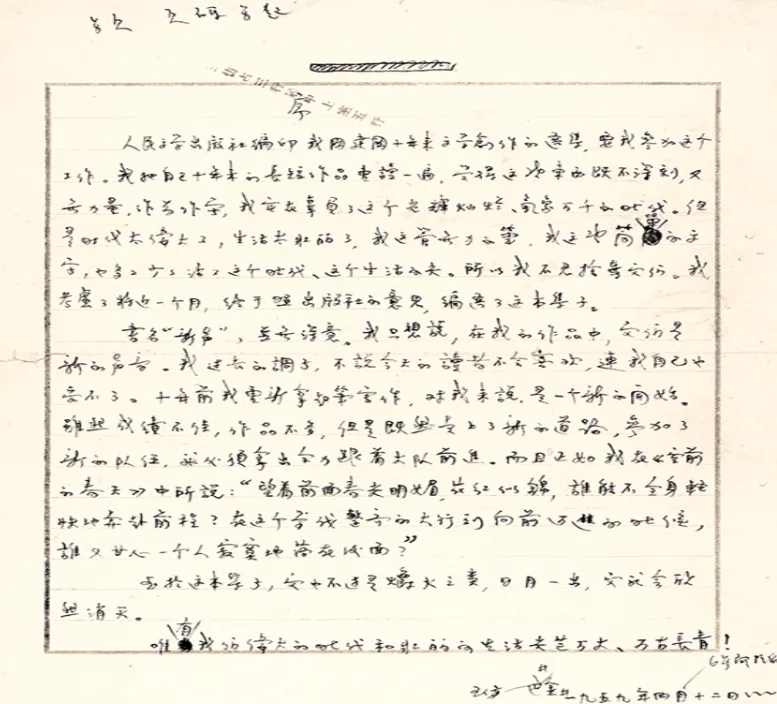 序
人民文学出版社編印我国建国十年来文学創作的選集，要我参加这个
工作。我把自己十年来的長短作品重讀一遍，覚得这些東西既不深刻，又
无力量，作为作家，我实在辜負了这个光輝灿烂、气象万千的时代。但
是时代太偉大了，生活太壮丽了，我这管无力的筆，我这些简單的文
字，也多多少少沾了这个时代、这个生活的光。所以我不忍捨棄它们。我
考慮了将近一个月，終于照出版社的意見，編選了这本集子。
書名“新声”，並无深意。我只想說，在我的作品中，它们是
新的声音。我过去的調子，不說今天的讀者不会喜欢，連我自己也
受不了。十年前我重新拿起筆写作，对我来說，是一个新的開始。
雖然成績不佳，作品不多，但是既然走上了新的道路，参加了
新的队伍，就必須拿出全力跟着大队前進。而且正如我在《空前
的春天》中所說：“望着前面春光明媚，花红似錦，誰能不全身輕
快地奔赴前程？在这个整齐的大行列向前迈進的时候，
誰又甘心一个人寂寞地落在後面？”
至於这本集子，它也不过是爝火之类，日月一出，它就会欣
然消灭。
唯有我们偉大的时代和壮丽的生活光芒万丈、万古長青！
巴金 一九五九年四月十二日